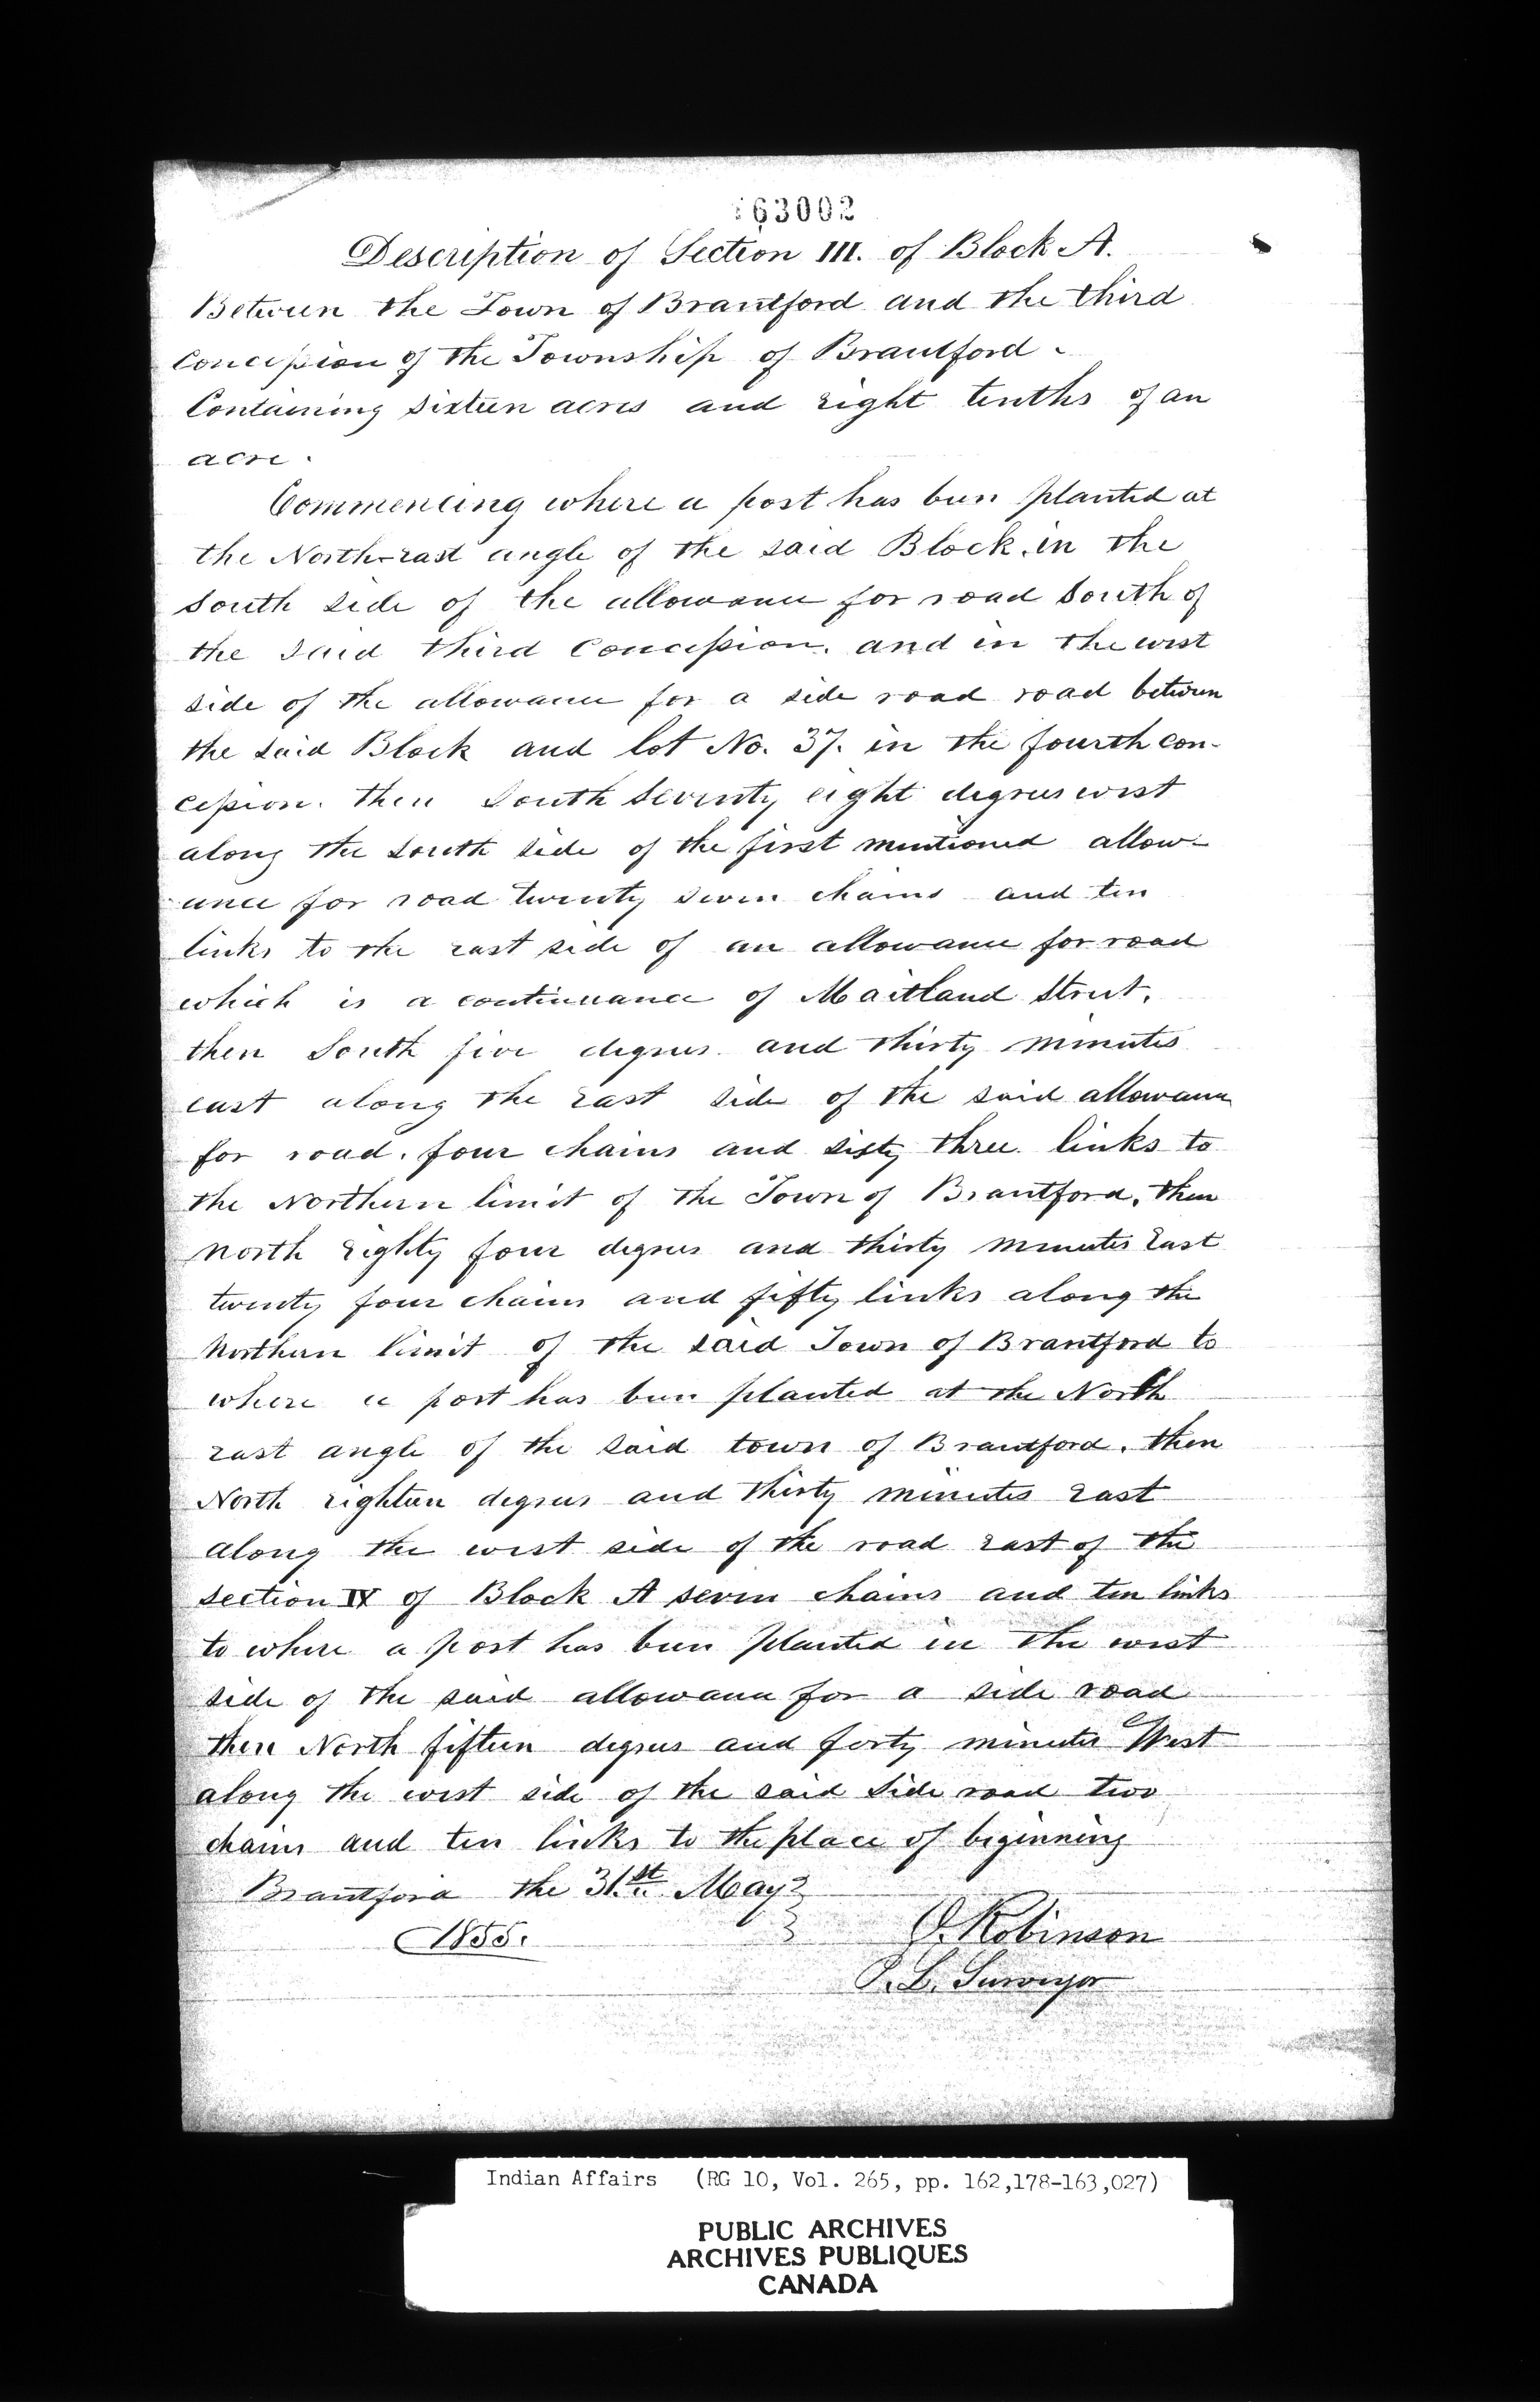 163002
Description of Section III. of Block A.
Between the Town of Brantford and the third
Concession of the Township of Brantford.
Containing sixteen acres and eight tenths of an
acre.
Commencing where a post has been planted at
the North-east angle of the said Block, in the
South side of the allowance for road South of
the said third Concession, and in the west
side of the allowance for a side road road between
the said Block and lot No. 37. in the fourth con-
cession. then South Seventy eight degrees west
along the South side of the first mentioned allow-
ance for road twenty seven chains and ten
links to the east side of an allowance for road
which is a continuance of Maitland Street.
then South five degrees and thirty minutes
east along the east side of the said allowance
for road, four chains and sixty three links to
the Northern limit of the Town of Brantford, then
North eighty four degrees and thirty minutes East
twenty four chains and fifty links along the
Northern limit of the said Town of Brantford to
where a post has been planted at the North
east angle of the said town of Brantford. then
North eighteen degrees and thirty minutes east
along the west side of the road east of the
section IV of Block A seven chains and ten links
to where a post has been planted in the west
side of the said allowance for a side road
then North fifteen degrees and forty minutes West
along the west side of the said Side road two
chains and ten links to the place of beginning
Brantford the 31st. May
1855.
O. Robinson
P. L. Surveyor
Indian Affairs (RG 10, Vol. 265, pp. 162,178-163,027)
PUBLIC ARCHIVES
ARCHIVES PUBLIQUES
CANADA